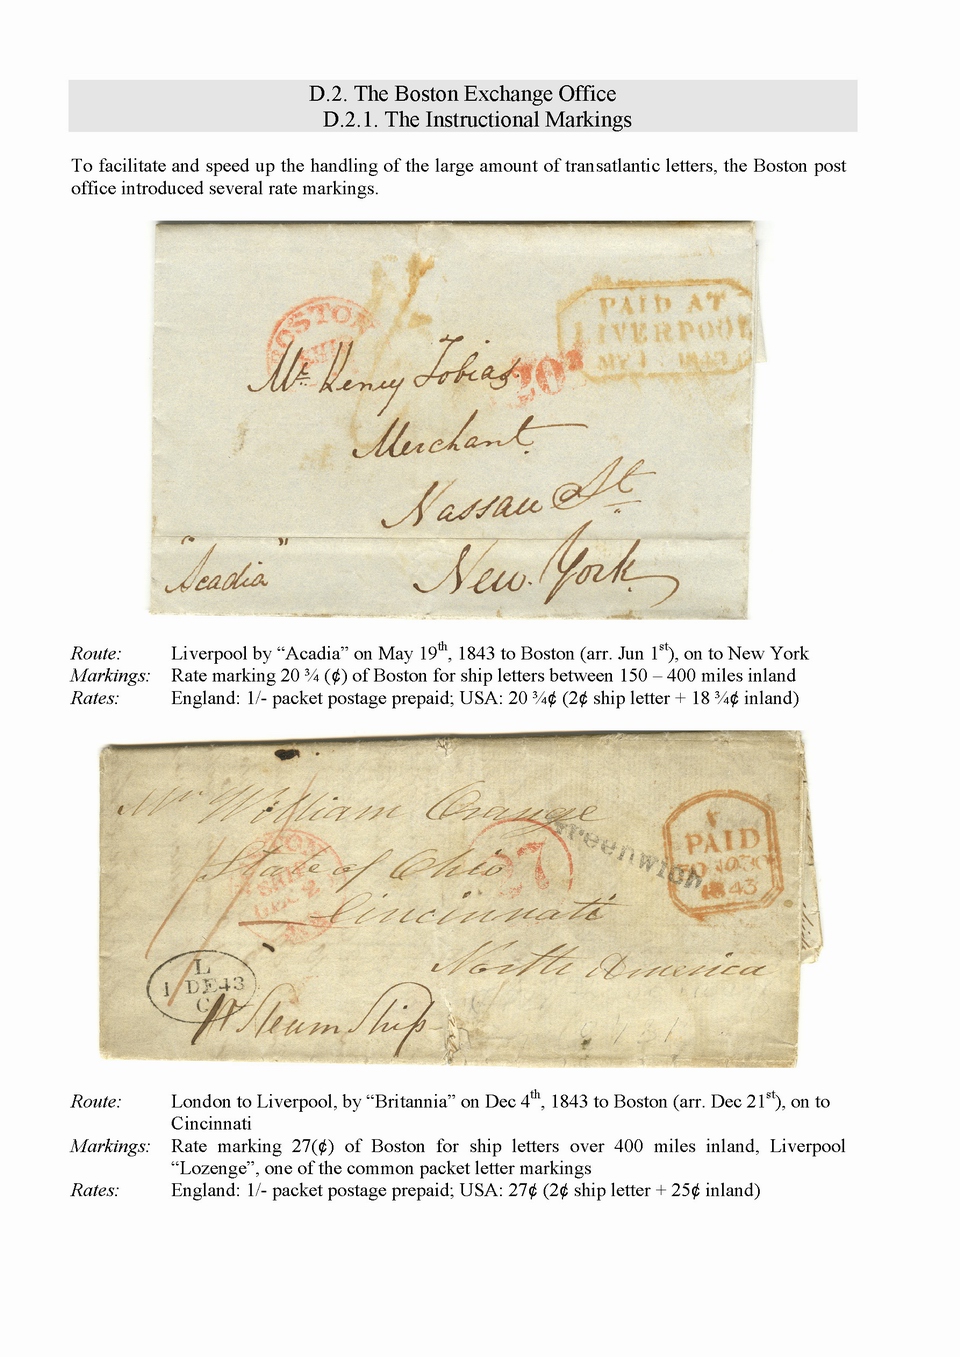 D.2. The Boston Exchange Office
D.2.1. The Instructional Markings
To facilitate and speed up the handling of the large amount of transatlantic letters, the Boston post
office introduced several rate markings.
BOSTON
SHIP
PAID AT
LIVERPOOL
Mr Henry Tobias
20¾
Merchant
Nassau St
New. York
"Acadia"
Route: Liverpool by “Acadia” on May 19th, 1843 to Boston (arr. Jun 1st), on to New York
Markings: Rate marking 20 ¾ (¢) of Boston for ship letters between 150 – 400 miles inland
Rates: England: 1/- packet postage prepaid; USA: 20 ¾¢ (2¢ ship letter + 18 ¾¢ inland)
Mr William Orange
Greenwich
PAID
1843
State of Ohio
27
Cincinnati
North America
L
1 DE 43
C
Steam Ship
Route: London to Liverpool, by “Britannia” on Dec 4th, 1843 to Boston (arr. Dec 21st), on to
Cincinnati
Markings: Rate marking 27(¢) of Boston for ship letters over 400 miles inland, Liverpool
“Lozenge”, one of the common packet letter markings
Rates: England: 1/- packet postage prepaid; USA: 27¢ (2¢ ship letter + 25¢ inland)